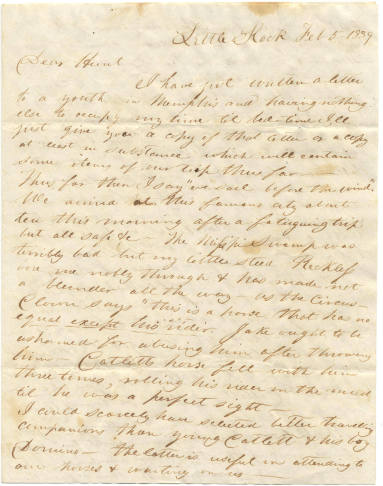 Little Rock Feb 5 1839
Dear Hunt
I have just written a letter
to a youth in Memphis and having nothing
else to occupy my time til bed-time I'll
just give you a copy of that letter or a copy
at least in substance which will contain
some items of our trip thus far—
Thus far then I say "we sail before the wind".
We arrived at this famous city about
ten this morning after a fatiguing trip
but all safe &c The Missippi Swamp was
terribly bad but my little steed Reckless
bore me nobly through & has made not
a blunder all the way— as the Circus
Clown says "this is a horse that has no
equal except his rider. Jake ought to be
ashamed for abusing him after throwing
him— Catletts horse fell with him
three times, rolling his rider in the mud
til he was a perfect sight—
I could scarcely have selected better traveling
companions than young Catlett & his boy
Domino— the latter is useful in attending to
our horses & waiting on us—